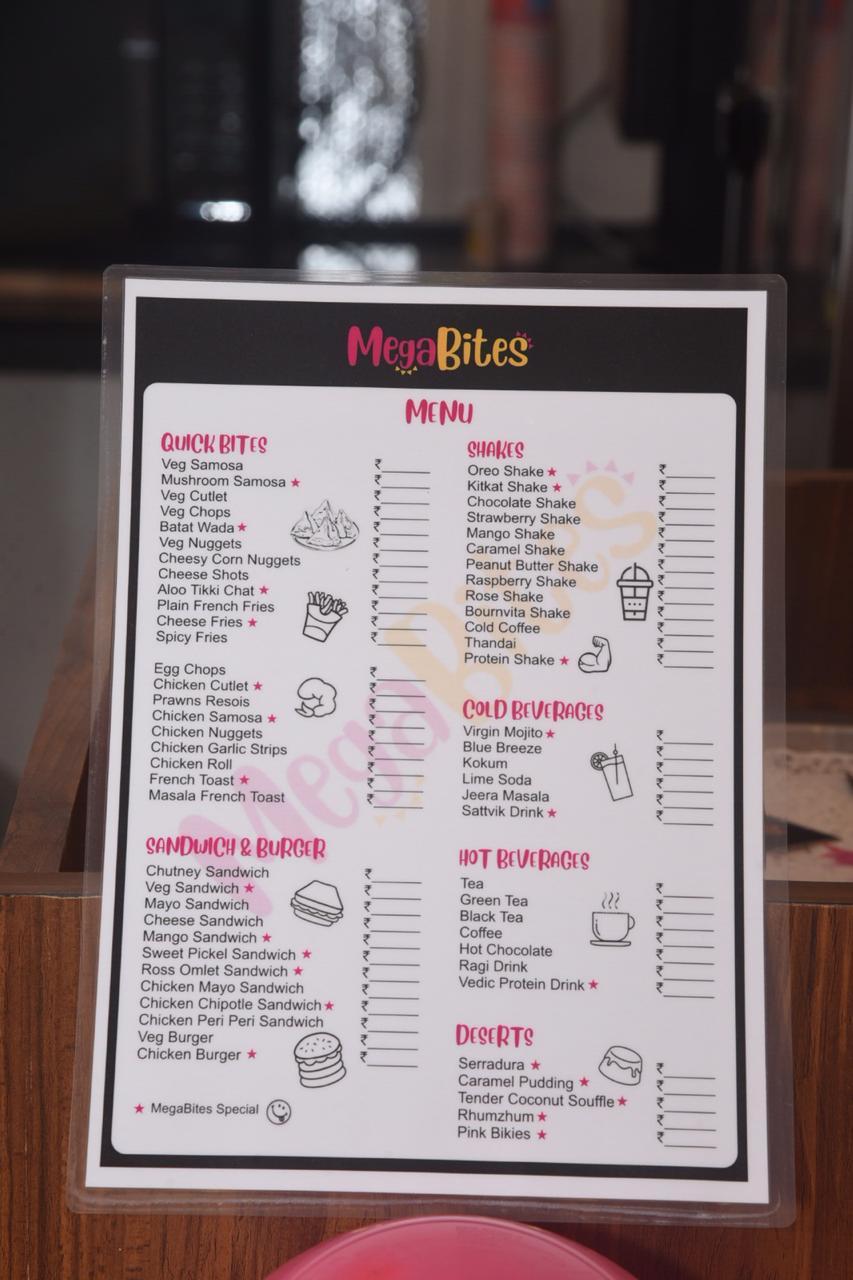 MegaBites
MENU
QUICK BITES
Veg Samosa ₹
Mushroom Samosa ★ ₹
Veg Cutlet ₹
Veg Chops ₹
Batat Wada ★ ₹
Veg Nuggets ₹
Cheesy Corn Nuggets ₹
Cheese Shots ₹
Aloo Tikki Chat ★ ₹
Plain French Fries ₹
Cheese Fries ★ ₹
Spicy Fries ₹
Egg Chops ₹
Chicken Cutlet ★ ₹
Prawns Resois ₹
Chicken Samosa ★ ₹
Chicken Nuggets ₹
Chicken Garlic Strips ₹
Chicken Roll ₹
French Toast ★ ₹
Masala French Toast ₹
SANDWICH & BURGER
Chutney Sandwich ₹
Veg Sandwich ★ ₹
Mayo Sandwich ₹
Cheese Sandwich ₹
Mango Sandwich ★ ₹
Sweet Pickel Sandwich ★ ₹
Ross Omlet Sandwich ★ ₹
Chicken Mayo Sandwich ₹
Chicken Chipotle Sandwich ★ ₹
Chicken Peri Peri Sandwich ₹
Veg Burger ₹
Chicken Burger ★ ₹
★ MegaBites Special
SHAKES
Oreo Shake ★ ₹
Kitkat Shake ★ ₹
Chocolate Shake ₹
Strawberry Shake ₹
Mango Shake ₹
Caramel Shake ₹
Peanut Butter Shake ₹
Raspberry Shake ₹
Rose Shake ₹
Bournvita Shake ₹
Cold Coffee ₹
Thandai ₹
Protein Shake ★ ₹
COLD BEVERAGES
Virgin Mojito ★ ₹
Blue Breeze ₹
Kokum ₹
Lime Soda ₹
Jeera Masala ₹
Sattvik Drink ★ ₹
HOT BEVERAGES
Tea ₹
Green Tea ₹
Black Tea ₹
Coffee ₹
Hot Chocolate ₹
Ragi Drink ₹
Vedic Protein Drink ★ ₹
DESERTS
Serradura ★ ₹
Caramel Pudding ★ ₹
Tender Coconut Souffle ★ ₹
Rhumzhum ★ ₹
Pink Bikies ★ ₹
MegaBites